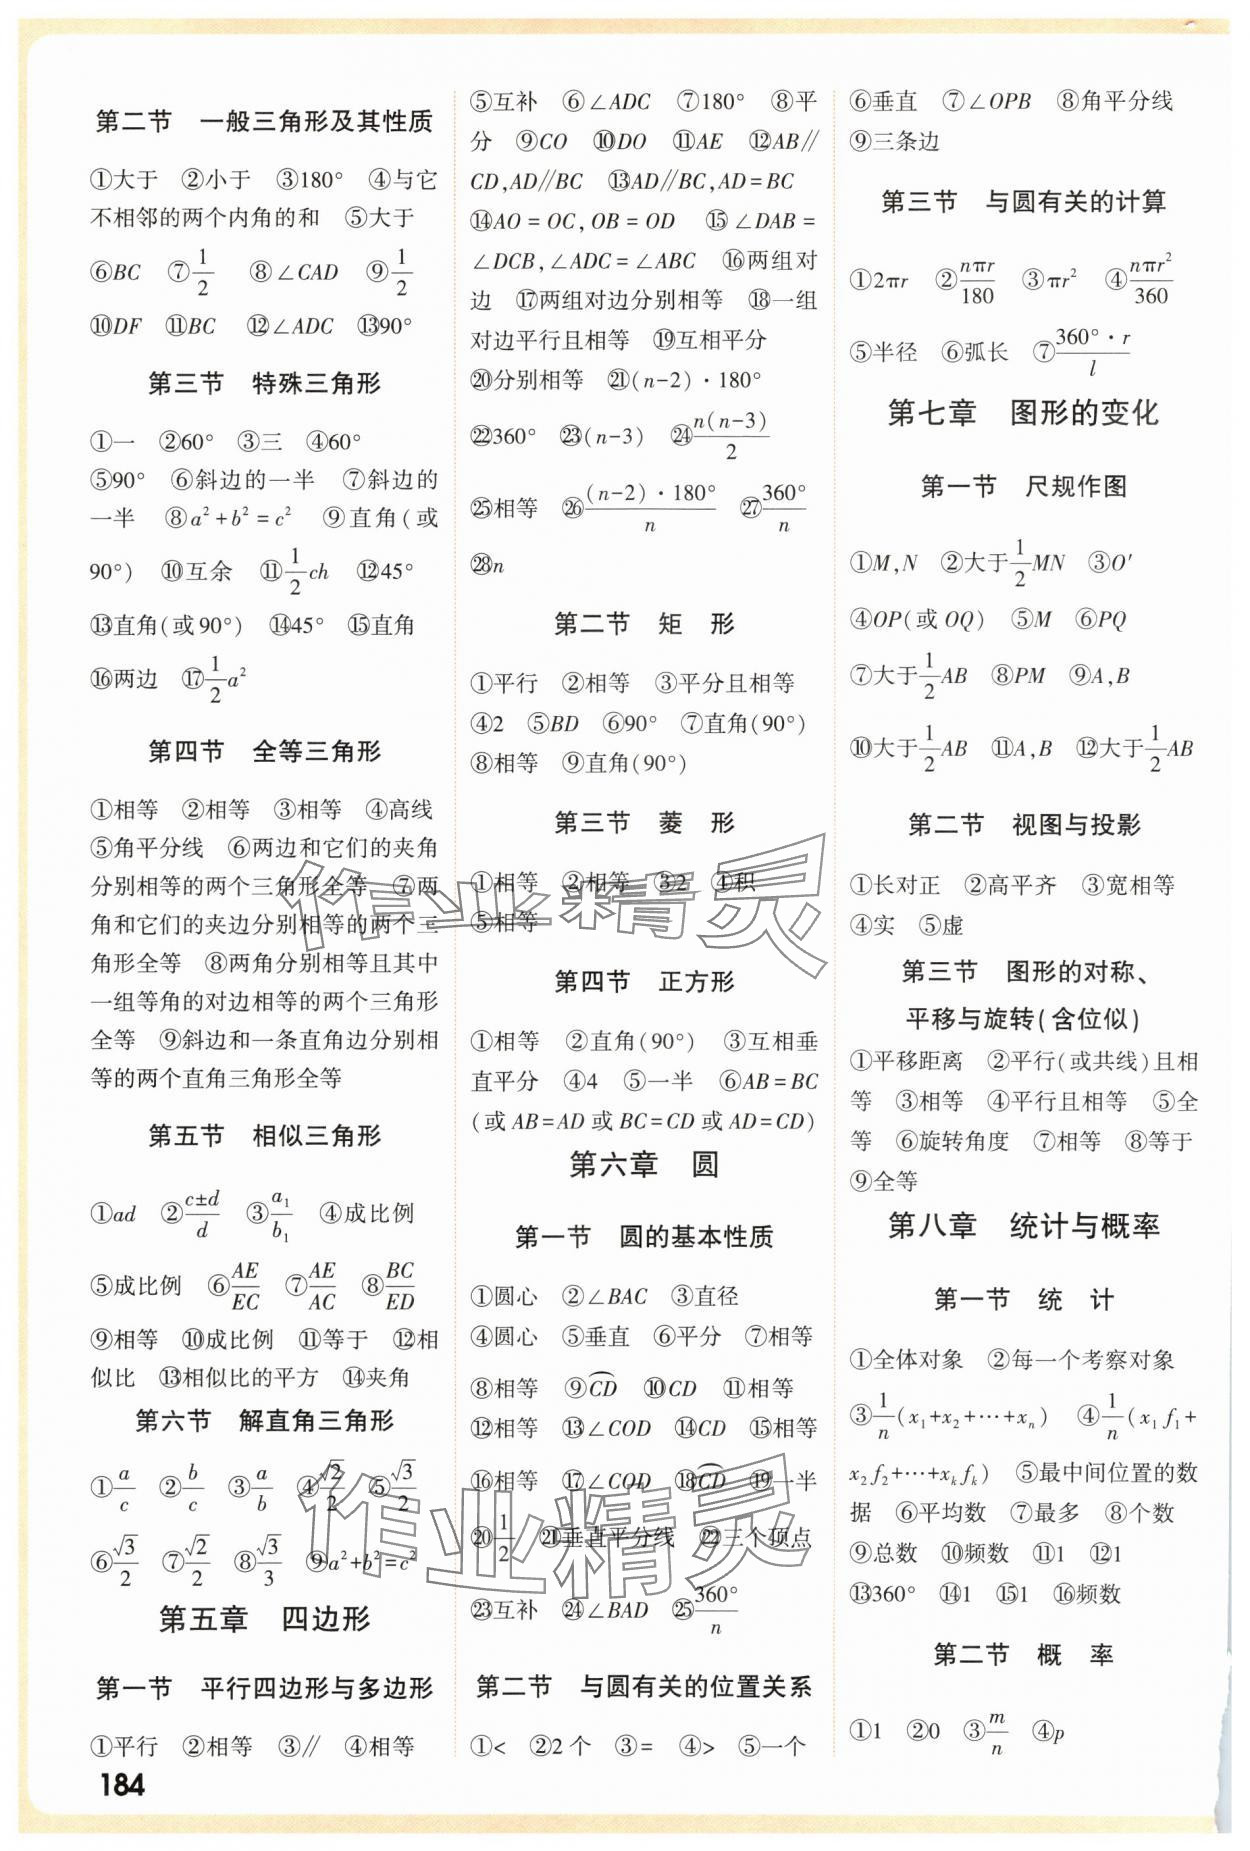 第二节 一般三角形及其性质
①大于 ②小于 ③180° ④与它
不相邻的两个内角的和 ⑤大于
⑥BC ⑦1/2 ⑧∠CAD ⑨1/2
⑩DF ⑪BC ⑫∠ADC ⑬90°
第三节 特殊三角形
①一 ②60° ③三 ④60°
⑤90° ⑥斜边的一半 ⑦斜边的
一半 ⑧a²+b²=c² ⑨直角(或
90°) ⑩互余 ⑪1/2ch ⑫45°
⑬直角(或90°) ⑭45° ⑮直角
⑯两边 ⑰1/2a²
第四节 全等三角形
①相等 ②相等 ③相等 ④高线
⑤角平分线 ⑥两边和它们的夹角
分别相等的两个三角形全等 ⑦两
角和它们的夹边分别相等的两个三
角形全等 ⑧两角分别相等且其中
一组等角的对边相等的两个三角形
全等 ⑨斜边和一条直角边分别相
等的两个直角三角形全等
第五节 相似三角形
①ad ②(c±d)/d ③a₁/b₁ ④成比例
⑤成比例 ⑥AE/EC ⑦AE/AC ⑧BC/ED
⑨相等 ⑩成比例 ⑪等于 ⑫相
似比 ⑬相似比的平方 ⑭夹角
第六节 解直角三角形
①a/c ②b/c ③a/b ④√2/2 ⑤√3/2
⑥√3/2 ⑦√2/2 ⑧√3/3 ⑨a²+b²=c²
第五章 四边形
第一节 平行四边形与多边形
①平行 ②相等 ③∥ ④相等
184
⑤互补 ⑥∠ADC ⑦180° ⑧平
分 ⑨CO ⑩DO ⑪AE ⑫AB∥
CD,AD∥BC ⑬AD∥BC,AD=BC
⑭AO=OC,OB=OD ⑮∠DAB=
∠DCB,∠ADC=∠ABC ⑯两组对
边 ⑰两组对边分别相等 ⑱一组
对边平行且相等 ⑲互相平分
⑳分别相等 ㉑(n-2)·180°
㉒360° ㉓(n-3) ㉔n(n-3)/2
㉕相等 ㉖(n-2)·180°/n ㉗360°/n
㉘n
第二节 矩 形
①平行 ②相等 ③平分且相等
④2 ⑤BD ⑥90° ⑦直角(90°)
⑧相等 ⑨直角(90°)
第三节 菱 形
①相等 ②相等 ③2 ④积
⑤相等
第四节 正方形
①相等 ②直角(90°) ③互相垂
直平分 ④4 ⑤一半 ⑥AB=BC
(或AB=AD或BC=CD或AD=CD)
第六章 圆
第一节 圆的基本性质
①圆心 ②∠BAC ③直径
④圆心 ⑤垂直 ⑥平分 ⑦相等
⑧相等 ⑨⌒CD ⑩CD ⑪相等
⑫相等 ⑬∠COD ⑭CD ⑮相等
⑯相等 ⑰∠COD ⑱⌒CD ⑲一半
⑳1/2 ㉑垂直平分线 ㉒三个顶点
㉓互补 ㉔∠BAD ㉕360°/n
第二节 与圆有关的位置关系
①< ②2个 ③= ④> ⑤一个
⑥垂直 ⑦∠OPB ⑧角平分线
⑨三条边
第三节 与圆有关的计算
①2πr ②nπr/180 ③πr² ④nπr²/360
⑤半径 ⑥弧长 ⑦360°·r/l
第七章 图形的变化
第一节 尺规作图
①M,N ②大于1/2MN ③O′
④OP(或OQ) ⑤M ⑥PQ
⑦大于1/2AB ⑧PM ⑨A,B
⑩大于1/2AB ⑪A,B ⑫大于1/2AB
第二节 视图与投影
①长对正 ②高平齐 ③宽相等
④实 ⑤虚
第三节 图形的对称、
平移与旋转(含位似)
①平移距离 ②平行(或共线)且相
等 ③相等 ④平行且相等 ⑤全
等 ⑥旋转角度 ⑦相等 ⑧等于
⑨全等
第八章 统计与概率
第一节 统 计
①全体对象 ②每一个考察对象
③1/n(x₁+x₂+…+xₙ) ④1/n(x₁f₁+
x₂f₂+…+xₖfₖ) ⑤最中间位置的数
据 ⑥平均数 ⑦最多 ⑧个数
⑨总数 ⑩频数 ⑪1 ⑫1
⑬360° ⑭1 ⑮1 ⑯频数
第二节 概 率
①1 ②0 ③m/n ④p
作业精灵
作业精灵